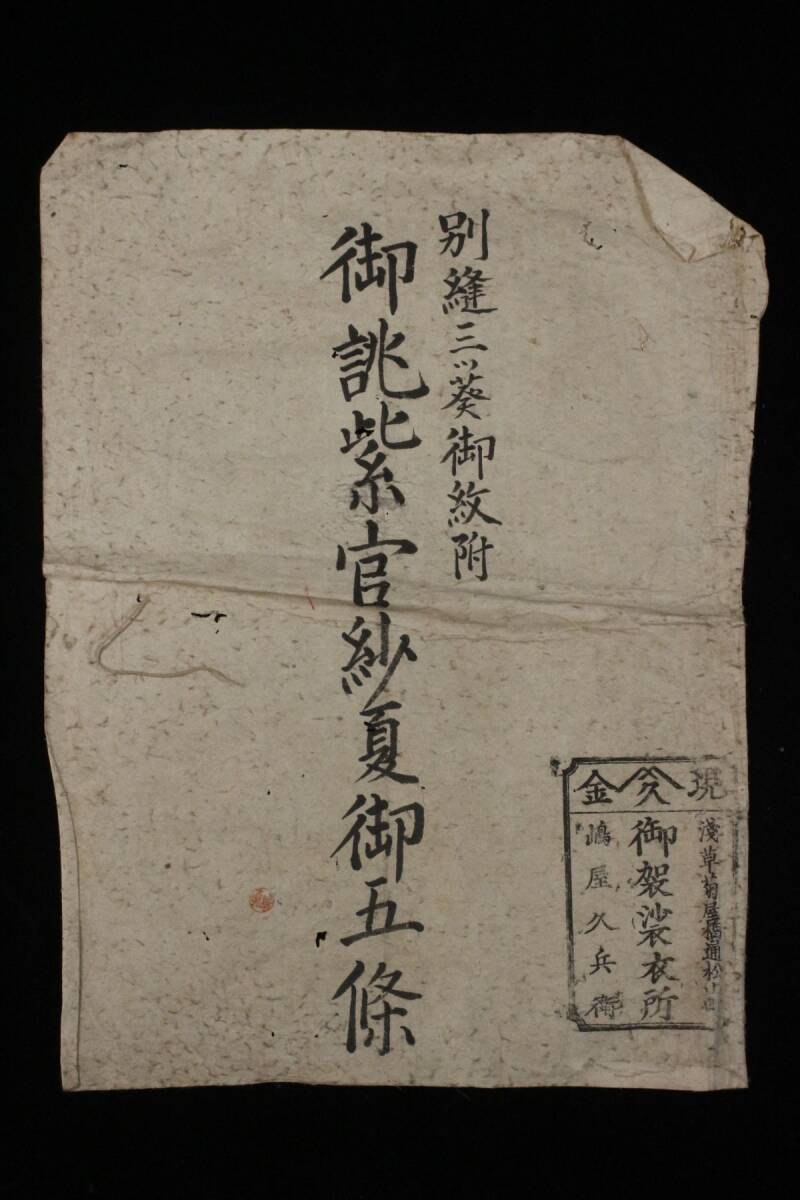 別縫三ッ葵御紋附
御誂紫官紗夏御五條
現久金
淺草菊屋橋通松
御袈裟衣所
嶋屋久兵衛